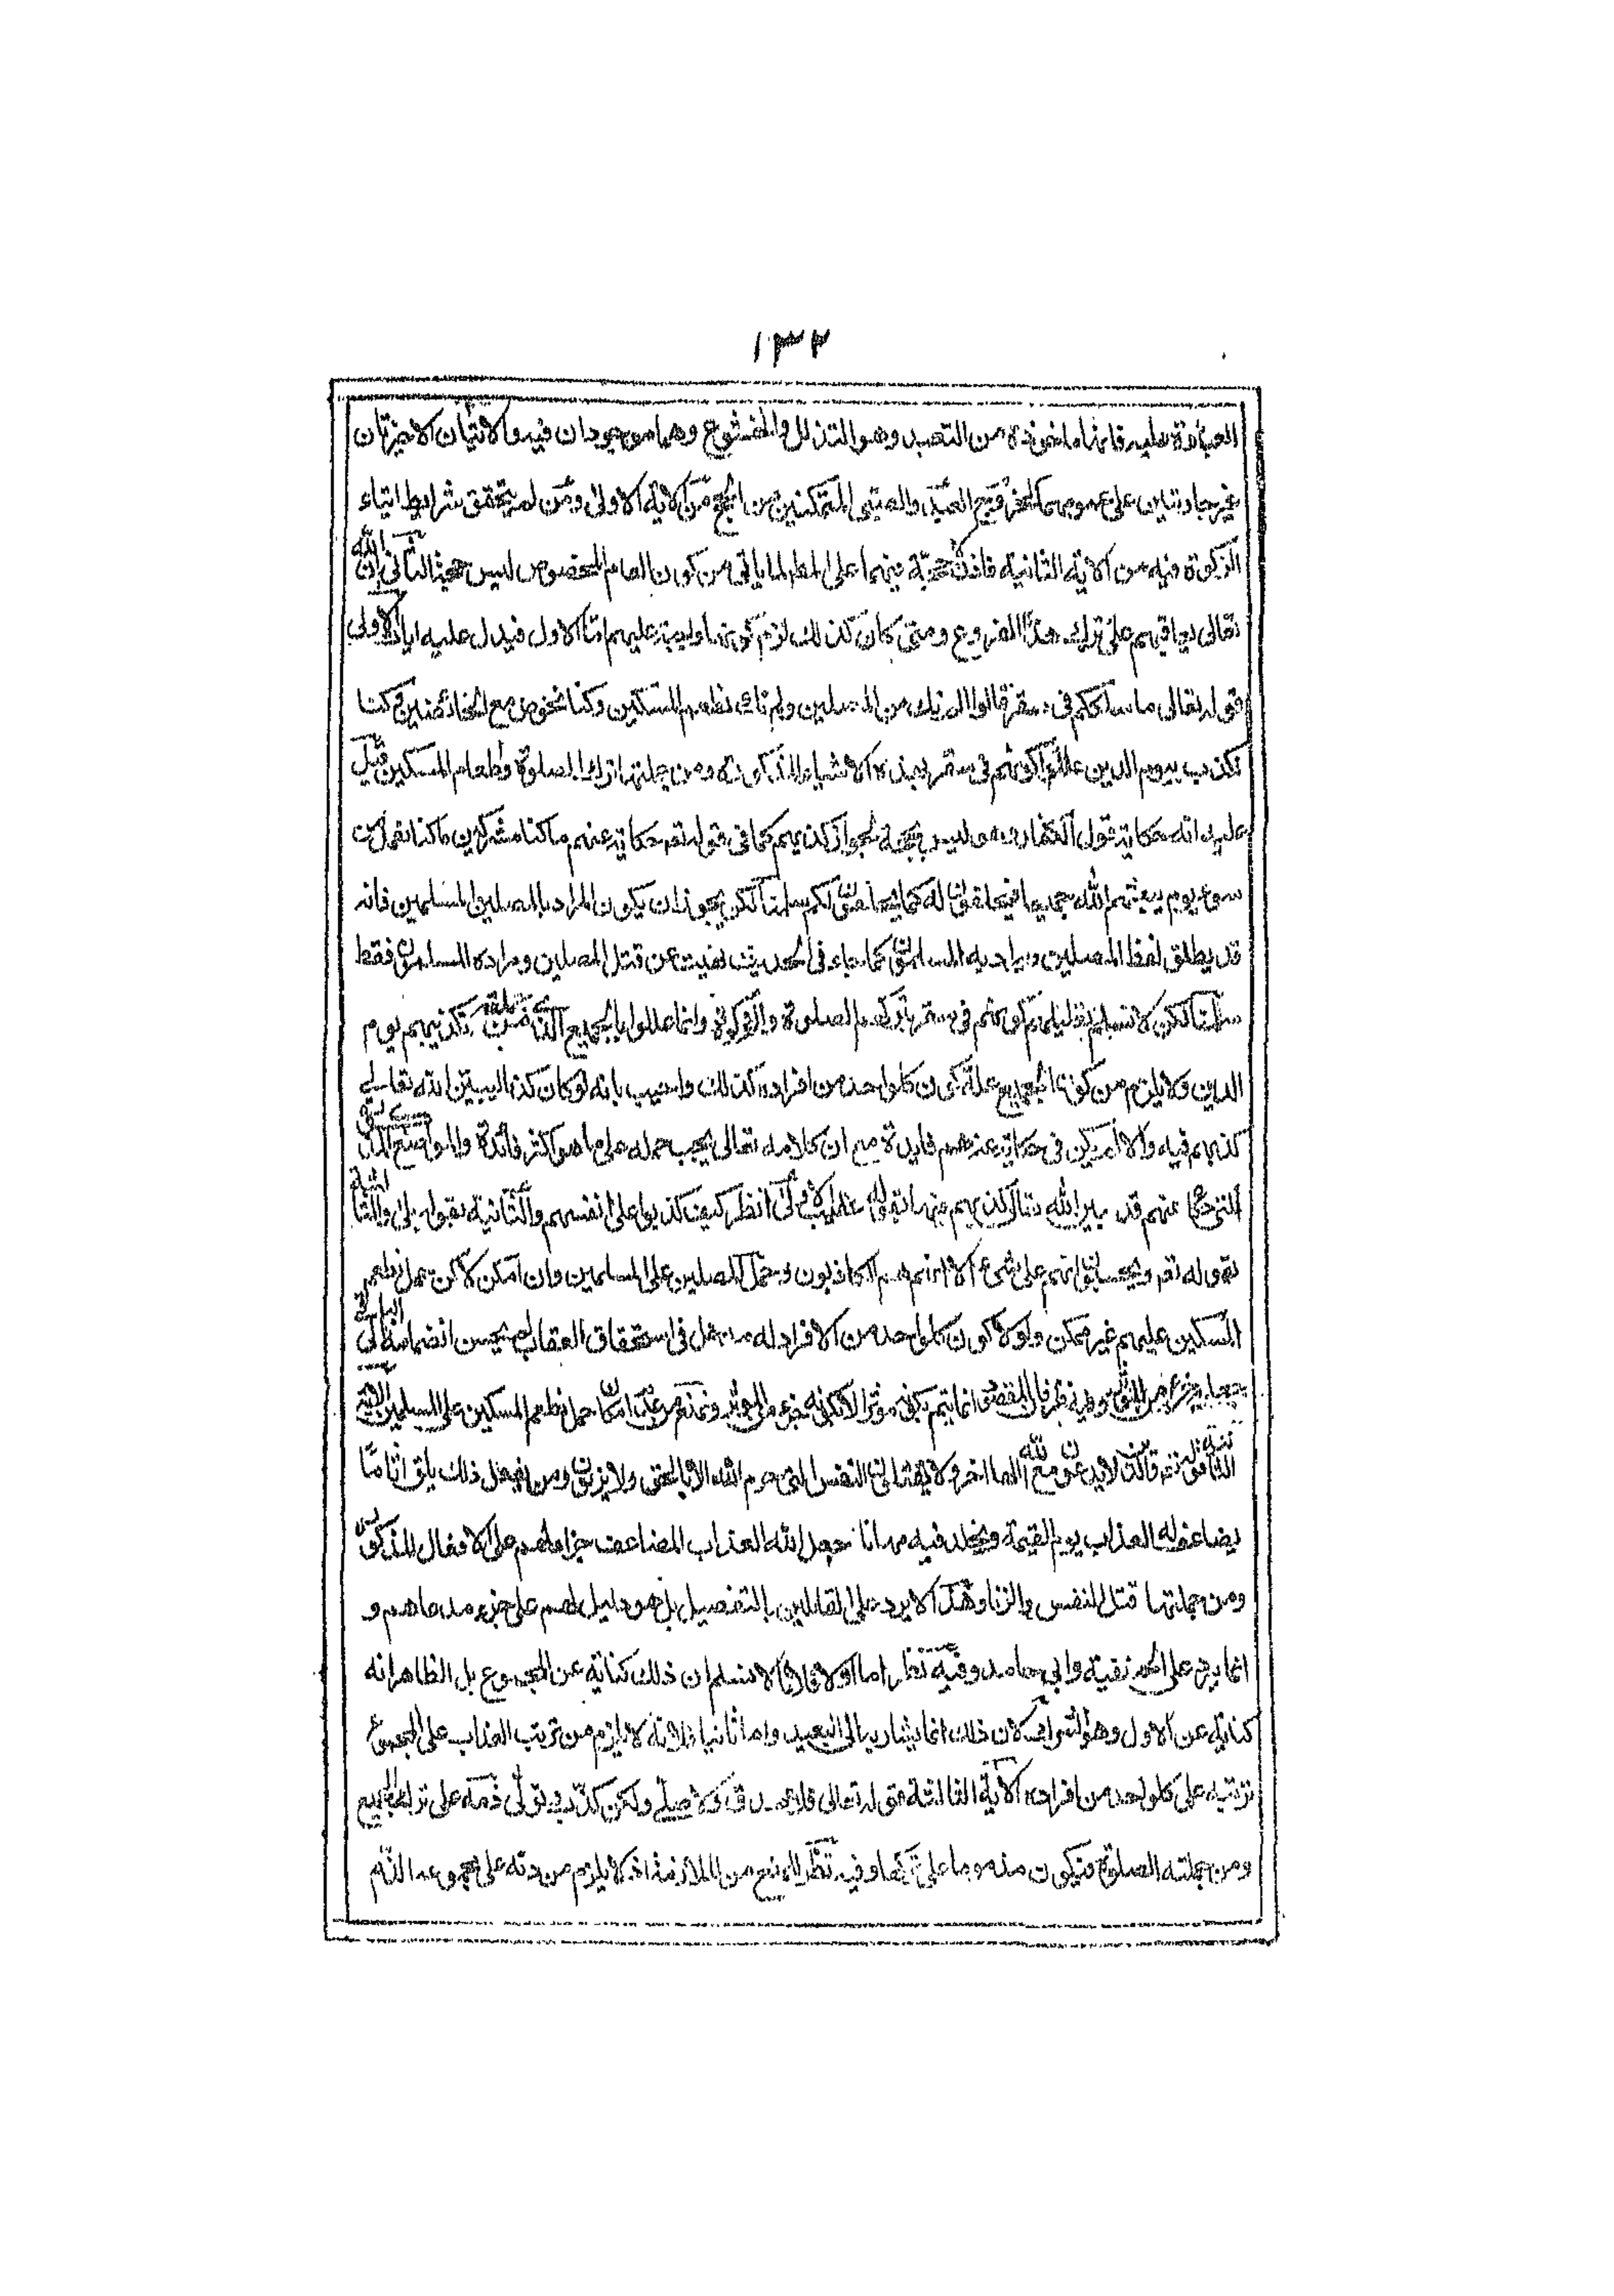 ١٣٢
العبادة عليه فانها ماخوذة من التعبد وهو التذلل والخشوع وهما موجودان فيه والآيتان الاخيرتان
غير جاريتين على عمومهما لخروج العبيد والصبى المتمكنين من الحج من الآية الاولى ومن لم يتحقق شرايط ايتاء
الزكوة فيه من الآية الثانية فلا حجة فيهما على المط لما ياتى من كون العام المخصوص ليس حجة الثانى ان الله
تعالى يعاقبهم على ترك هذا الفروع ومتى كان كذلك لزم كونها واجبة عليهم اما الاول فيدل عليه ايات الاولى
قوله تعالى ما سلككم فى سقر قالوا لم نك من المصلين ولم نك نطعم المسكين وكنا نخوض مع الخائضين وكنا
نكذب بيوم الدين عللوا كونهم فى سقر بهذه الاشياء المذكورة ومن جملتها ترك الصلوة وطعام المسكين قيل
عليه انه حكاية قول الكفار وليس بحجة لجواز كذبهم كما فى قوله تعـ حكاية عنهم ما كنا مشركين ما كنا نعمل من
سوء يوم يبعثهم الله جميعا فيحلفون له كما يحلفون لكم سلمنا لكن يجوز ان يكون المراد بالمصلين المسلمين فانه
قد يطلق لفظ المصلين ويراد به المسلمون كما جاء فى الحديث نهيت عن قتل المصلين ومراده المسلمون فقط
سلمنا لكن لا نسلم تعليلهم كونهم فى سقر بترك الصلوة والزكوة وانما عللوا بالجميع الذى من جملته تكذيبهم بيوم
الدين ولا يلزم من كون الجميع علة كون كل واحد من افراده كذلك واجيب بانه لو كان كذبا لبين الله تعالى
كذبهم فيه والا لم يكن فى حكايته عنهم فايدة مع ان كلامه تعالى يجب حمله على ما هو اكثر فائدة والمواضع
التى حكى عنهم قد بين الله تعالى كذبهم فيها بقوله عقيب الاولى انظر كيف كذبوا على انفسهم والثانية بقوله بلى والثالثة
بقوله تعـ ويحسبون انهم على شىء الا انهم هم الكاذبون وحمل المصلين على المسلمين وان امكن لكن حمل نطعم
المسكين عليهم غير ممكن ولولا كون كل واحد من الافراد له مدخل فى استحقاق العقاب لم يحسن انضمامه الى الباقى
وفيه نظر فان المقصود انما يتم بكونه مؤثرا لا بكونه جزء من المؤثر ونمنع من عدم امكان حمل نطعم المسكين على المسلمين الآية
الثانية قوله تعـ والذين لا يدعون مع الله الها اخر ولا يقتلون النفس التى حرم الله الا بالحق ولا يزنون ومن يفعل ذلك يلق اثاما
يضاعف له العذاب يوم القيمة ويخلد فيه مهانا جعل الله العذاب المضاعف جزاء لهم على الافعال المذكورة
ومن جملتها قتل النفس والزنا وهذا لا يرد على القائلين بالتفصيل بل هو دليل لهم على جزء مدعاهم و
انما يرد على الحنفية وابى حامد وفيه نظر اما اولا فلانا لا نسلم ان ذلك كناية عن المجموع بل الظاهر انه
كناية عن الاول وهو الشرك لان ذلك انما يشار به الى البعيد واما ثانيا فلانه لا يلزم من ترتب العذاب على المجموع
ترتبه على كل واحد من افراده الآية الثالثة قوله تعالى فلا صدق ولا صلى ولكن كذب وتولى ذمه على ترك الجميع
ومن جملته الصلوة فيكون مذموما على تركها وفيه نظر للمنع من الملازمة اذ لا يلزم من ذمه على مجموع الذم